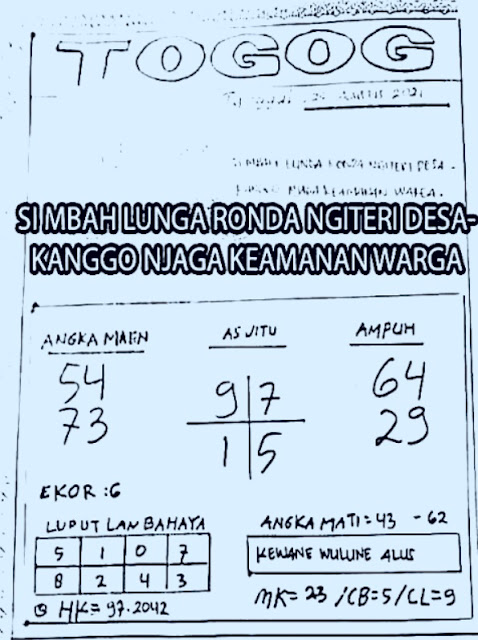 TOGOG
2021
SIMBAH LUNGA RONDA NGITERI DESA -
KEAMANAN WARGA.
SI MBAH LUNGA RONDA NGITERI DESA-
KANGGO NJAGA KEAMANAN WARGA
ANGKA MAEN AS JITU AMPUH
54 9 7 64
73 1 5 29
EKOR : 6
LUPUT LAN BAHAYA
5 1 0 7
8 2 4 3
HK= 97.2042
ANGKA MATI = 43 - 62
KEWANE WULUNE ALUS
MK= 23 / CB=5 / CL=9